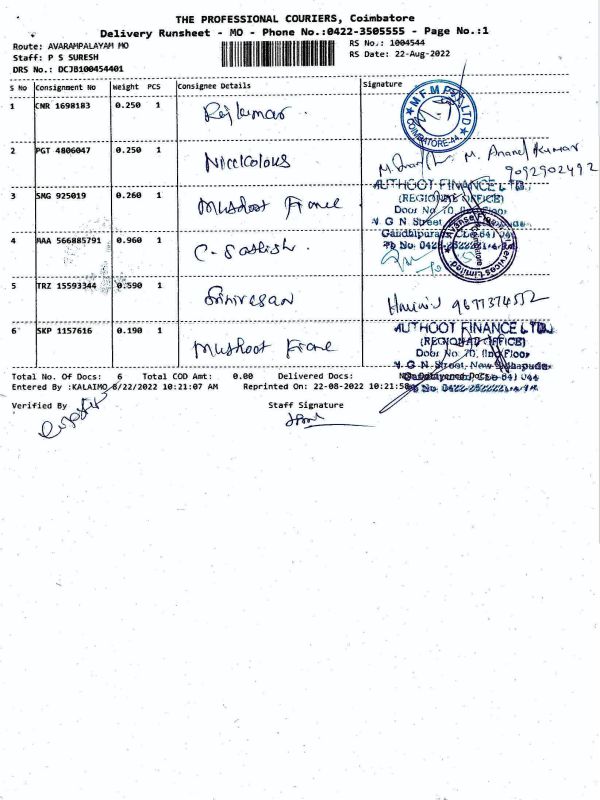 THE PROFESSIONAL COURIERS, Coimbatore
Delivery Runsheet - MO - Phone No.:0422-3505555 - Page No.:1
Route: AVARAMPALAYAM MO
RS No.: 1004544
Staff: P S SURESH
RS Date: 22-Aug-2022
DRS No.: DCJB100454401
S No Consignment No Weight PCS Consignee Details Signature
1 CNR 1698183 0.250 1 Rajkumar
M.F.M PVT LTD COIMBATORE-44
2 PGT 4806047 0.250 1 Nicelcolous
M. Anand Kumar
9092902492
3 SMG 925019 0.260 1 Muthoot Finance
MUTHOOT FINANCE LTD.
(REGIONAL OFFICE)
Door No. 70, IInd Floor
V. G N Street
Gandhipuram, Cbe-641 044
4 MAA 566885791 0.960 1 C. Sathish.
Services Limited
5 TRZ 15593344 0.590 1 Srinivasan
9677374552
6 SKP 1157616 0.190 1 Muthoot Finance
MUTHOOT FINANCE LTD.
(REGIONAL OFFICE)
Door No. 70, IInd Floor
V. G N Street, New Siddhapudur
Total No. Of Docs: 6 Total COD Amt: 0.00 Delivered Docs:
Entered By :KALAIMO 8/22/2022 10:21:07 AM Reprinted On: 22-08-2022 10:21:50
Verified By Staff Signature